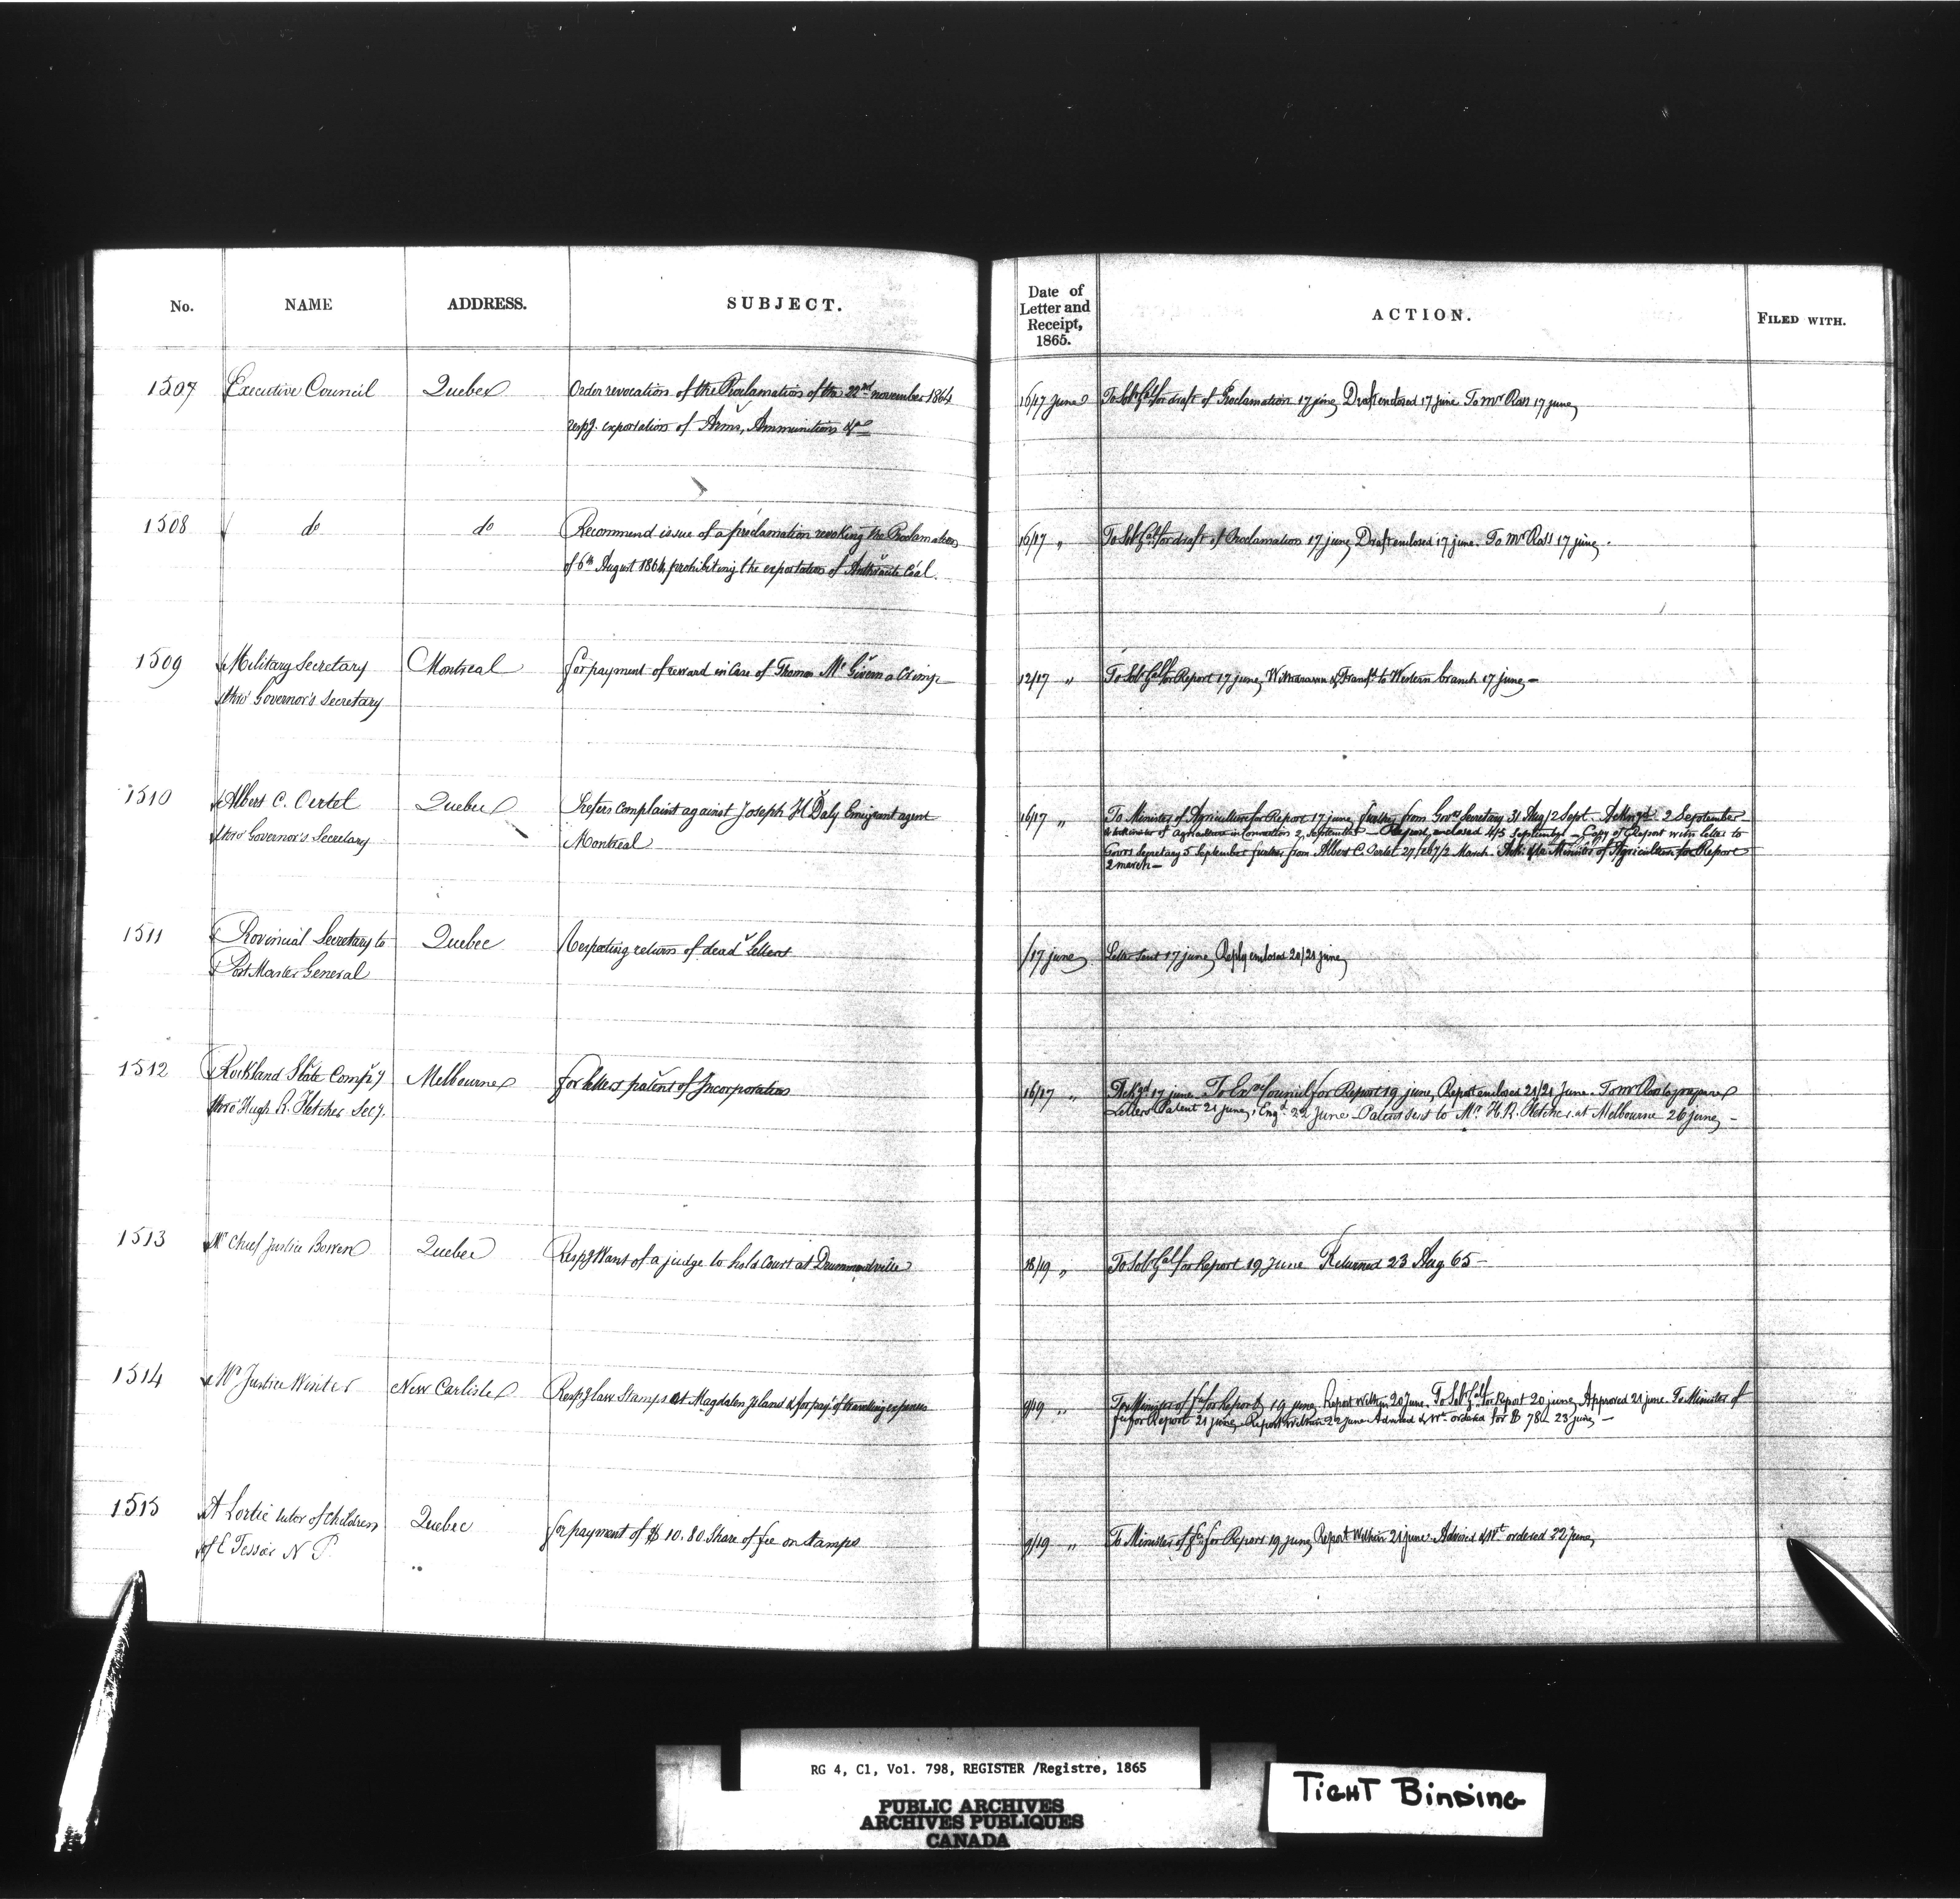 No. NAME ADDRESS. SUBJECT.
Date of
Letter and
Receipt,
1865.
ACTION. FILED WITH.
1507 Executive Council Quebec Order revocation of the Proclamation of the 22nd november 1864
respg. exportation of Arms, Ammunitions &c
16/17 June To Solr Genl for draft of Proclamation 17 june, Draft enclosed 17 june To Mr Ross 17 june,
1508 do do Recommend issue of a proclamation revoking the Proclamation
of 6th August 1864, prohibiting the exportation of Anthracite Coal.
16/17 " To Solr Genl for draft of Proclamation 17 june, Draft enclosed 17 june. To Mr Ross 17 june.
1509 Military Secretary Montreal for payment of reward in Case of Thomas McGivern a Crimp
thro' Governor's Secretary
12/17 " To Solr Genl for Report 17 june, Withdrawn & Transfd to Western branch 17 june
1510 Albert C. Oertel Quebec Prefers complaint against Joseph H Daly Emigrant agent
thro' Governor's Secretary Montreal
16/17 " To Minister of Agriculture for Report 17 june, further from Govrs Secretary 31 Aug/2 Sept. Acknowgd 2 September
to Minister of Agriculture in Connection 2, September Report, enclosed 4/5 September Copy of Report with letter to
Govrs Secretary 5 September further from Albert C. Oertel 27/ March. Minister of Agriculture for Report
2 march
1511 Provincial Secretary to Quebec Respecting return of dead letters
Post Master General
/17 june Letter sent 17 june, Reply enclosed 20/21 june,
1512 Rockland Slate Compy Melbourne for letters patent of Incorporation
thro' Hugh R. Fletcher Secy.
16/17 " Ackgd 17 june To Exve Council for Report 19 june, Report enclosed 21/21 June. To Mr Ross to prepare
Letters Patent 21 june, Engd 22 June Patent sent to Mr H. R. Fletcher at Melbourne 26 june,
1513 Mr Chief Justice Bowen Quebec Respg Want of a judge to hold Court at Drummondville
18/19 " To Solr Genl for Report 19 June Returned 23 Aug 65
1514 Mr Justice Winter New Carlisle Respg law Stamps at Magdalen Island & for payt of travelling expenses
9/19 " To Minister of fce for Report 19 june, Report within 20 June. To Solr Genl for Report 20 june, Approved 21 june. To Minister of
fce for Report 21 june, Report within 22 june Advised & Wt ordered for $ 78 23 june,
1515 A Lortie tutor of Children Quebec for payment of $ 10.80 Share of fee on Stamps
of E Tessier N P
9/19 " To Minister of fce for Report 19 june, Report Within 21 june Advised & Wt ordered 22 june,
RG 4, C1, Vol. 798, REGISTER /Registre, 1865
PUBLIC ARCHIVES
ARCHIVES PUBLIQUES
CANADA
TIGHT BINDING